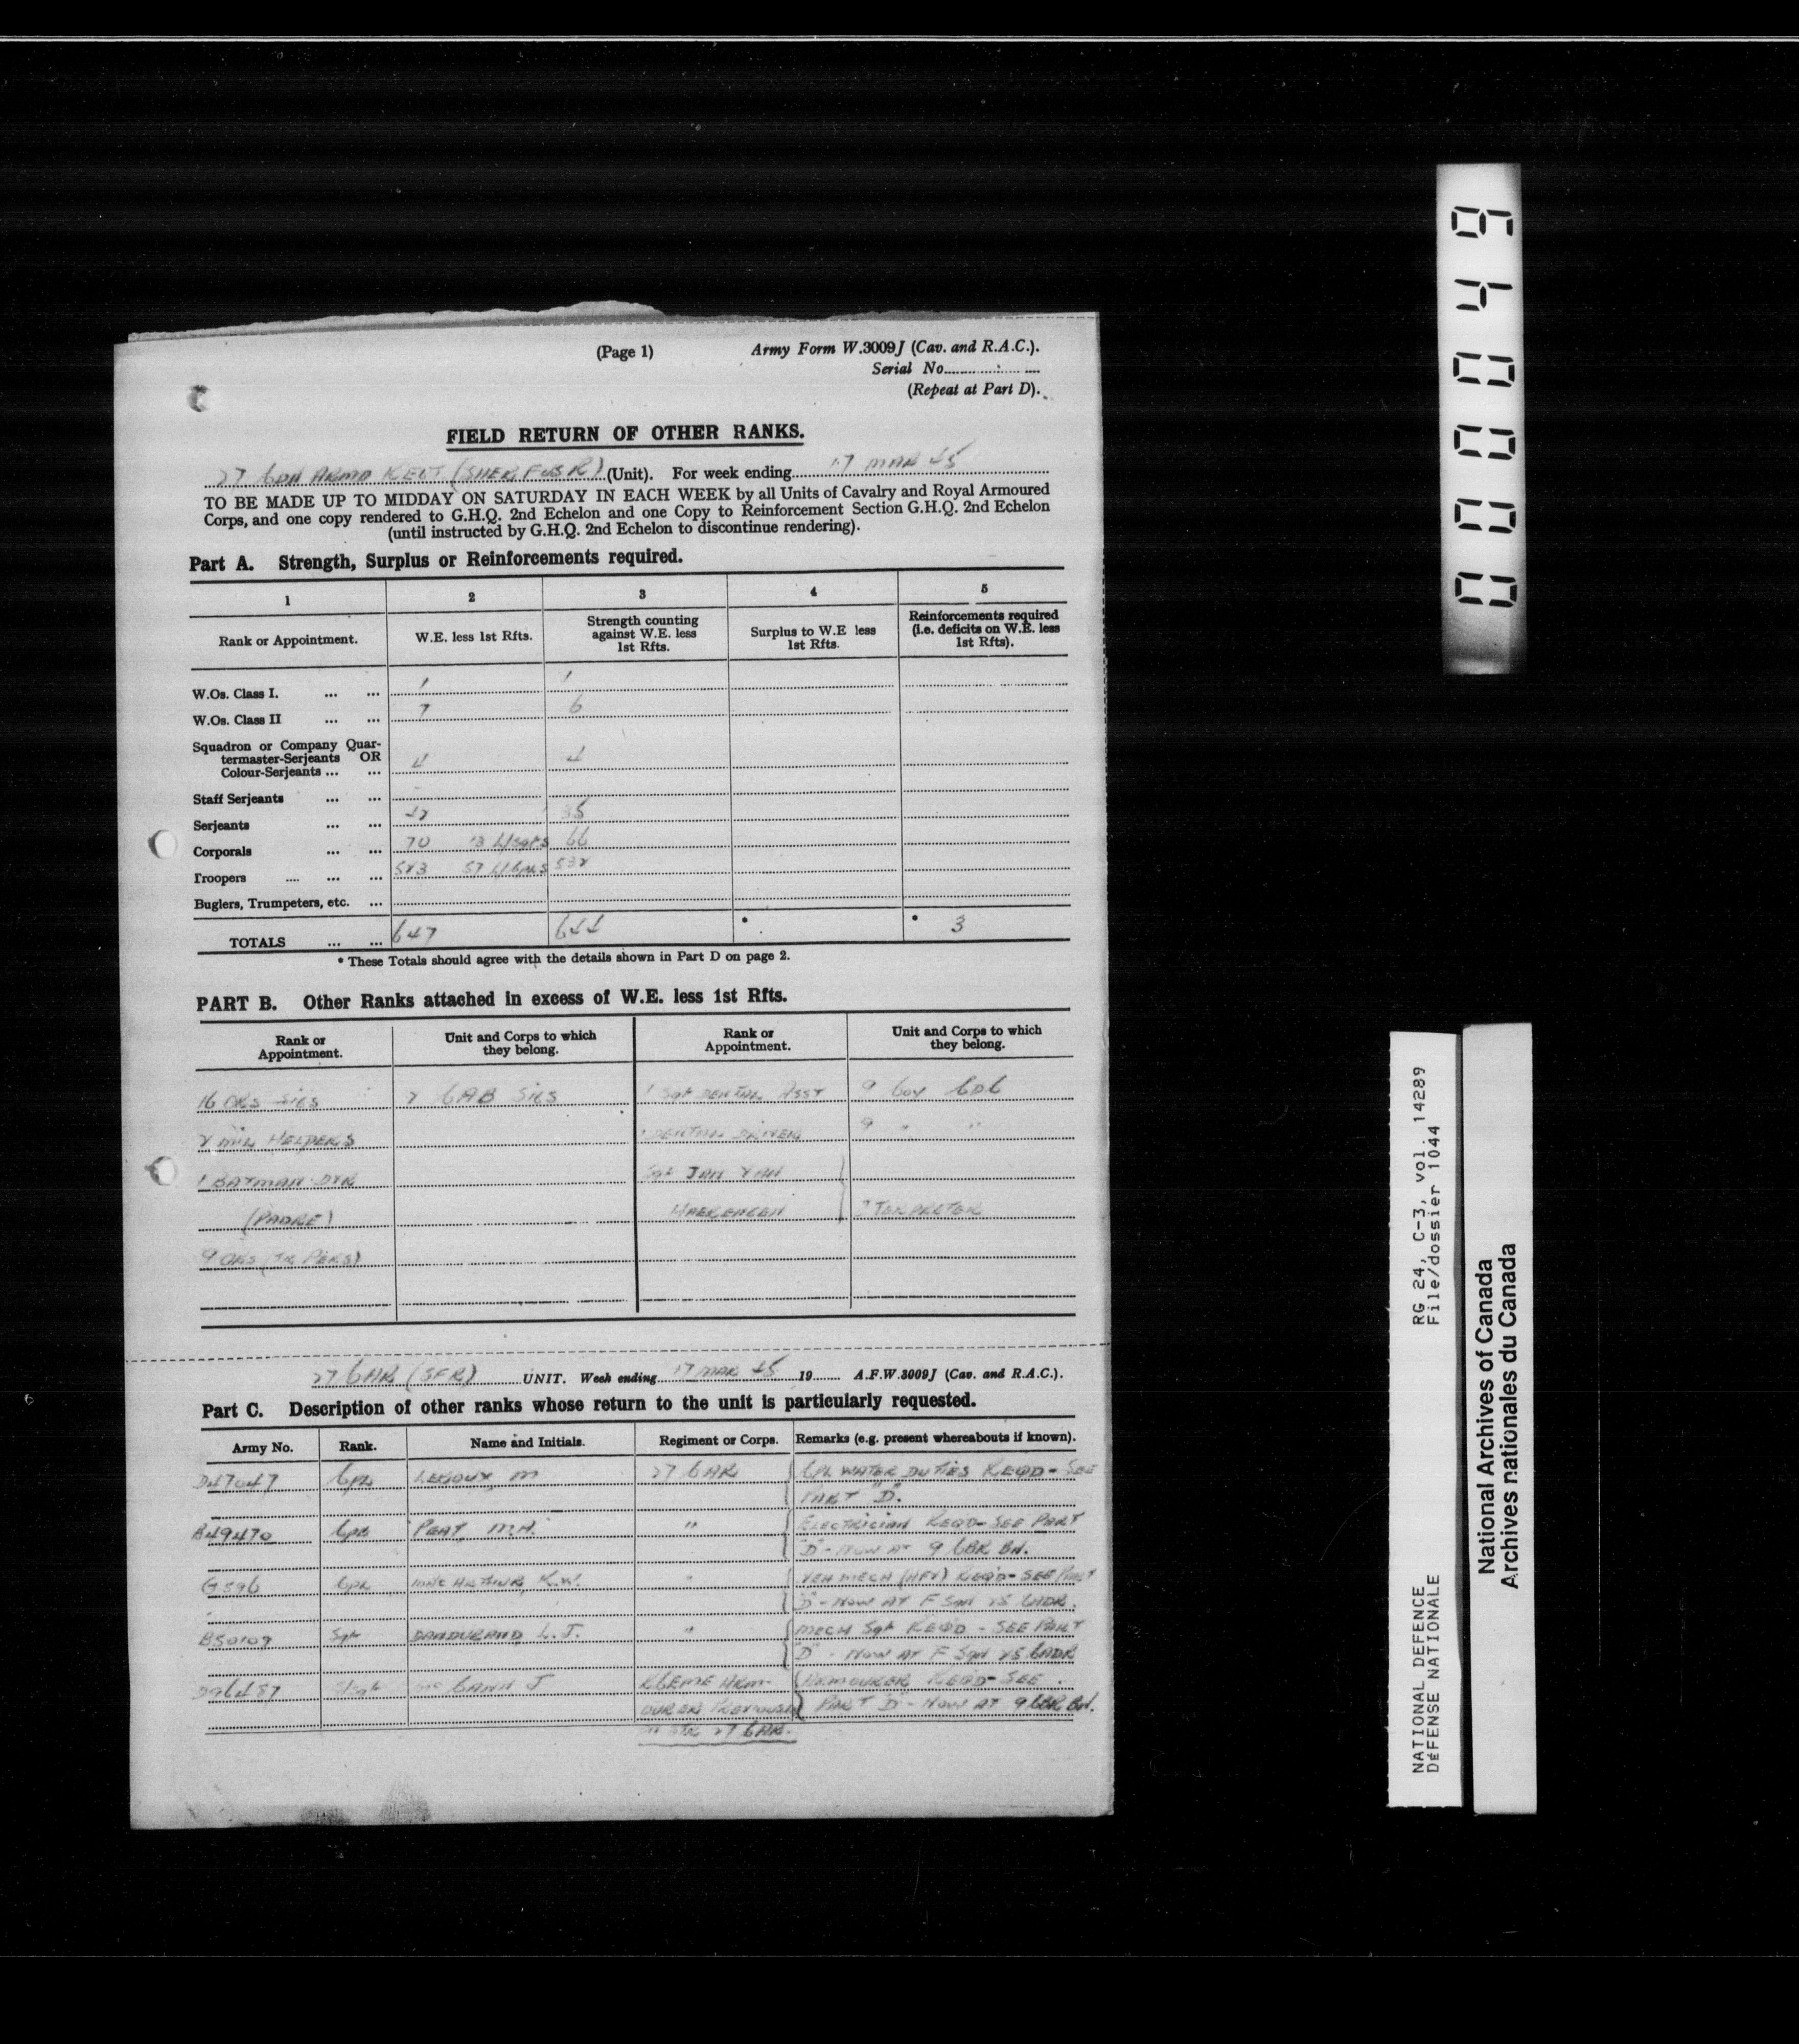 (Page 1) Army Form W.3009J (Cav. and R.A.C.).
Serial No.
(Repeat at Part D).
FIELD RETURN OF OTHER RANKS.
27 CDN ARMD REGT (SHER FUS R) (Unit). For week ending 17 MAR 45
TO BE MADE UP TO MIDDAY ON SATURDAY IN EACH WEEK by all Units of Cavalry and Royal Armoured
Corps, and one copy rendered to G.H.Q. 2nd Echelon and one Copy to Reinforcement Section G.H.Q. 2nd Echelon
(until instructed by G.H.Q. 2nd Echelon to discontinue rendering).
Part A. Strength, Surplus or Reinforcements required.
1 2 3 4 5
Rank or Appointment. W.E. less 1st Rfts. Strength counting against W.E. less 1st Rfts. Surplus to W.E less 1st Rfts. Reinforcements required (i.e. deficits on W.E. less 1st Rfts).
W.Os. Class I. ... ... 1 1
W.Os. Class II ... ... 7 6
Squadron or Company Quar-
termaster-Serjeants OR
Colour-Serjeants ... ... 4 4
Staff Serjeants ... ...
Serjeants ... ... 42 35
Corporals ... ... 70 13 L/Sgts 66
Troopers .... ... ... 523 57 L/Cpls 532
Buglers, Trumpeters, etc. ...
TOTALS ... ... 647 644 * * 3
* These Totals should agree with the details shown in Part D on page 2.
PART B. Other Ranks attached in excess of W.E. less 1st Rfts.
Rank or Appointment. Unit and Corps to which they belong. Rank or Appointment. Unit and Corps to which they belong.
16 ORS SIGS 2 CAB SIGS 1 Sgt DENTAL ASST 9 Coy CDC
2 MIN HELPERS 1 DENTAL DRIVER 9 " "
1 BATMAN DVR Sgt JAN VAN
(PADRE)
9 ORS
27 CAR (SFR) UNIT. Week ending 17 MAR 45 19 A.F.W.3009J (Cav. and R.A.C.).
Part C. Description of other ranks whose return to the unit is particularly requested.
Army No. Rank. Name and Initials. Regiment or Corps. Remarks (e.g. present whereabouts if known).
D47047 Cpl LEDOUX M 27 CAR CPL WATER DUTIES REQD - SEE
PART "D".
B49470 Cpl PEAT M.H. " ELECTRICIAN REQD - SEE PART
"D" - NOW AT 9 CBR Bn.
G596 Cpl MacARTHUR, K.W. " VEH MECH (AFV) REQD - SEE PART
"D" - NOW AT F Sqn 25 CADR.
B50109 Sgt DANDURAND L.J. " MECH Sgt REQD - SEE PART
"D" - NOW AT F Sqn 25 CADR
D96487 Mc CANN J RCEME ARM- ARMOURER REQD - SEE
OURER PREVIOUSLY PART "D" - NOW AT 9 CBR Bn.
27 CAR.
000049
RG 24, C-3, vol. 14289
File/dossier 1044
NATIONAL DEFENCE
DÉFENSE NATIONALE
National Archives of Canada
Archives nationales du Canada